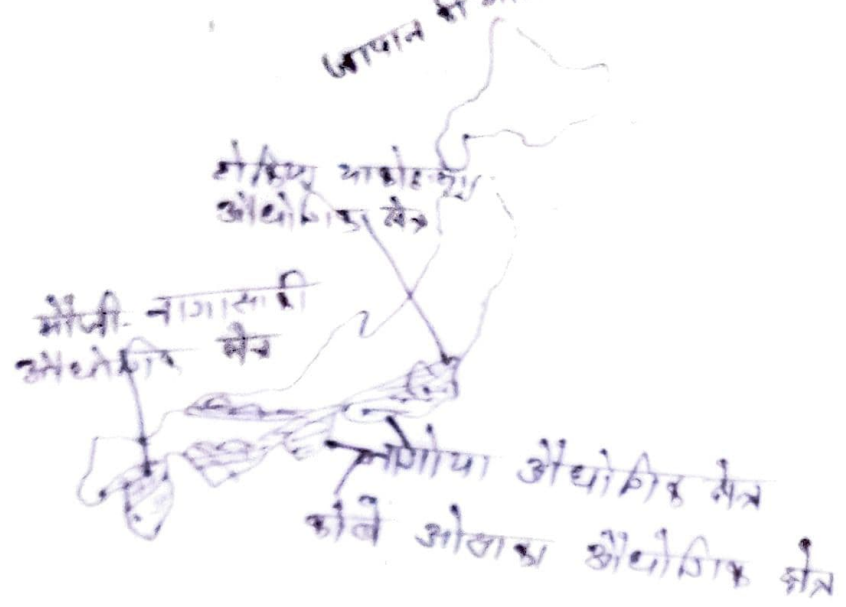 जापान के
टोकियो याकोहामा
औद्योगिक क्षेत्र
मौजी-नागासाकी
औद्योगिक क्षेत्र
नागोया औद्योगिक क्षेत्र
कोबे ओसाका औद्योगिक क्षेत्र